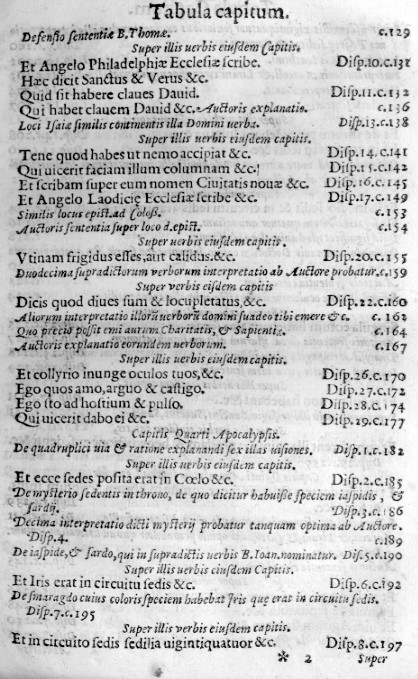 Tabula capitum.
Defensio sententiæ B. Thomæ. c.129
Super illis uerbis eiusdem Capitis.
Et Angelo Philadelphiæ Ecclesiæ scribe. Disp.10.c.131
Hæc dicit Sanctus & Verus &c.
Quid sit habere claues Dauid. Disp.11.c.132
Qui habet clauem Dauid &c. Auctoris explanatio. c.136
Loci Isaiæ similis continentis illa Domini uerba. Disp.13.c.138
Super illis uerbis eiusdem capitis.
Tene quod habes ut nemo accipiat &c. Disp.14.c.141
Qui uicerit faciam illum columnam &c. Disp.15.c.142
Et scribam super eum nomen Ciuitatis nouæ &c. Disp.16.c.145
Et Angelo Laodicię Ecclesiæ scribe &c. Disp.17.c.149
Similis locus epist. ad Coloss. c.153
Auctoris sententia super loco d. epist. c.154
Super uerbis eiusdem capitis.
Vtinam frigidus esses, aut calidus &c. Disp.20.c.155
Duodecima supradictorum verborum interpretatio ab Auctore probatur. c.159
Super verbis eiusdem capitis
Dicis quod diues sum & locupletatus, &c. Disp.22.c.160
Aliorum interpretatio illorũ uerborũ domini suadeo tibi emere &c. c. 162
Quo precio possit emi aurum Charitatis, & Sapientiæ. c.164
Auctoris explanatio eorundem uerborum. c.167
Super illis uerbis eiusdem capitis.
Et collyrio inunge oculos tuos, &c. Disp.26.c.170
Ego quos amo, arguo & castigo. Disp.27.c.172
Ego sto ad hostium & pulso. Disp.28.c.174
Qui uicerit dabo ei &c. Disp.29.c.177
Capitis Quarti Apocalypsis.
De quadruplici uia & ratione explanandi sex illas uisiones. Disp.1.c.182
Super illis uerbis eiusdem capitis.
Et ecce sedes posita erat in Cœlo &c. Disp.2.c.185
De mysterio sedentis in throno, de quo dicitur habuisse speciem iaspidis, &
sardij. Disp.3.c.186
Decima interpretatio dicti mysterij probatur tanquam optima ab Auctore.
Disp.4. c.189
De iaspide, & sardo, qui in supradictis uerbis B. Ioan. nominatur. Dis.5.c.190
Super illis uerbis eiusdem Capitis.
Et Iris erat in circuitu sedis &c. Disp.6.c.192
De smaragdo cuius coloris speciem habebat Iris quę erat in circuitu sedis.
Disp.7.c.195
Super illis verbis eiusdem capitis.
Et in circuito sedis sedilia uigintiquatuor &c. Disp.8.c.197
* 2 Super